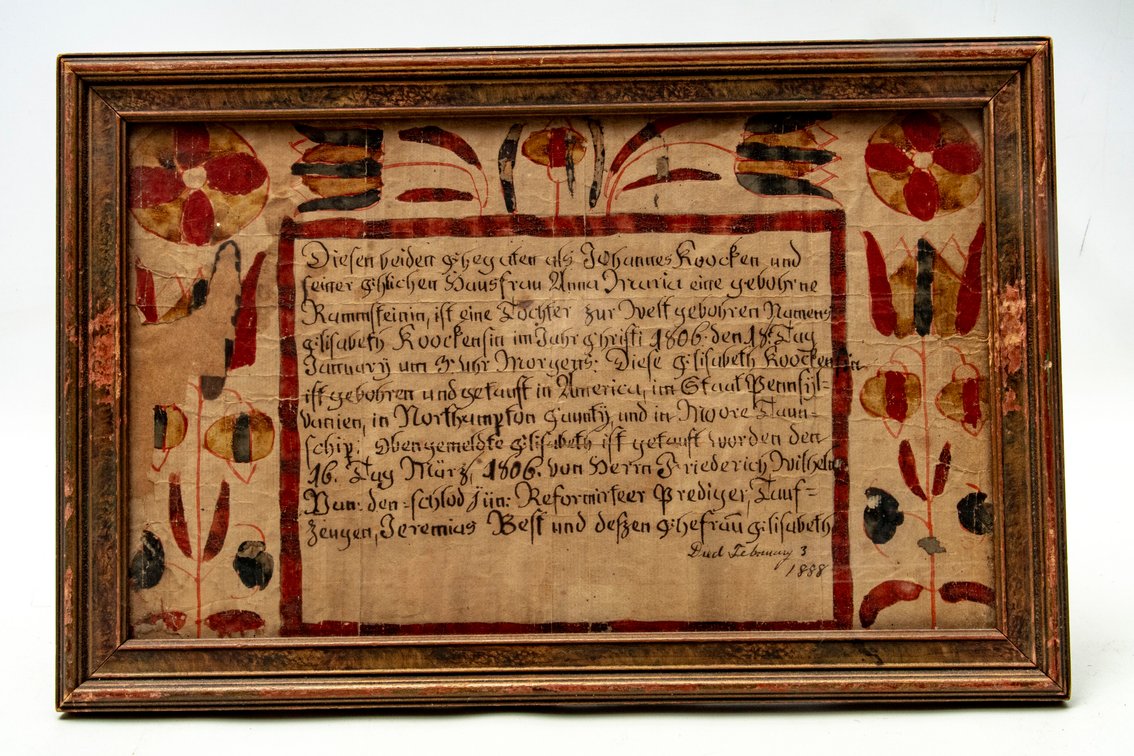 Diesen beiden Ehegatten als Johannes Koocken und
seiner Ehlichen Hausfrau Anna Maria eine gebohrne
Rammsteinin, ist eine Tochter zur Welt gebohren Namens
Elisabeth Koockensin im Jahr Christi 1806. den 18. Tag
January um 3 Uhr Morgens: Diese Elisabeth Koockensin
ist gebohren und getauft in America, im Staat Pennsÿl-
vanien, in Northampton Caunty, und in Moore Taun-
schip. Obengemeldte Elisabeth ist getauft worden den
16. Tag Märtz, 1806. von Herrn Friederich Wilhelm
Van: den =schlod jün: Reformirteer Prediger, Tauf=
Zeugen, Jeremias Best und deßzen Ehefrau Elisabeth
Died February 3
1888